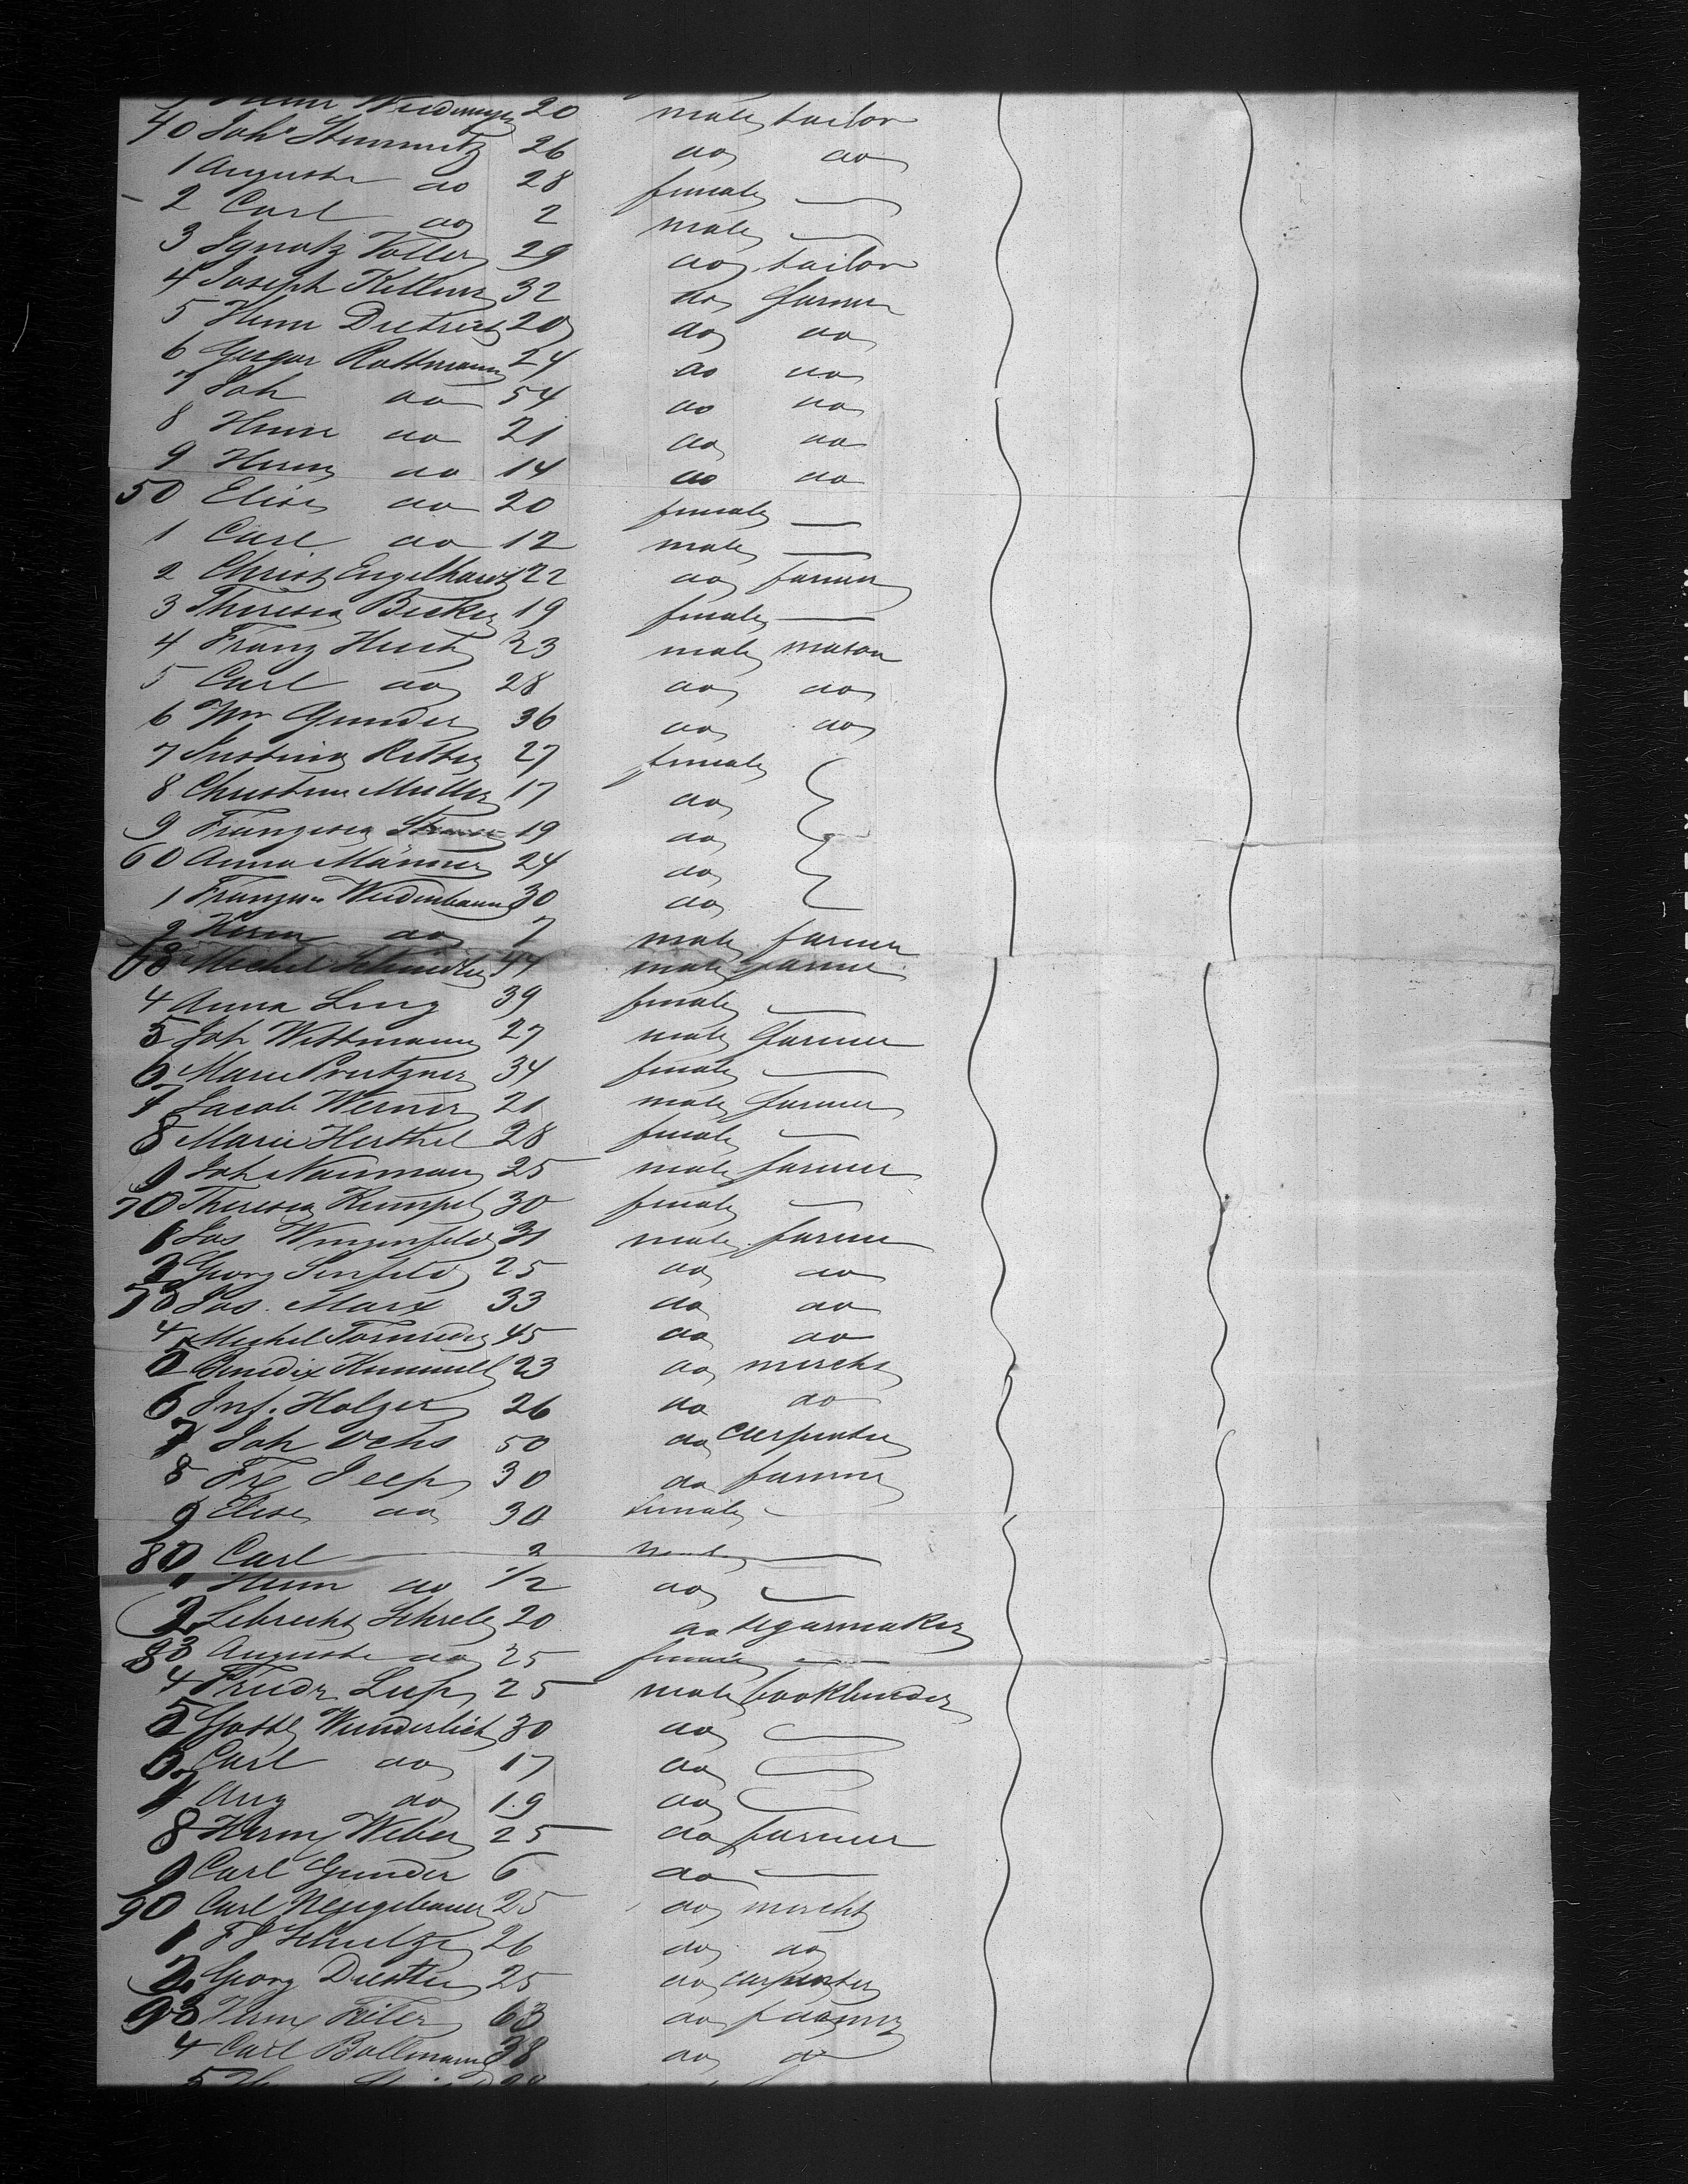 20 male tailor
40 Joh. Stemmitz 26 do do
1 Auguste do 28 female —
2 Carl do 2 male —
3 Ignatz Voller 29 do tailor
4 Joseph Kellner 32 do farmer
5 Henr Dietrich 20 do do
6 Gregor Rottmann 24 do do
7 Joh do 54 do do
8 Henr do 21 do do
9 Herm do 14 do do
50 Elise do 20 female —
1 Carl do 12 male —
2 Christ Engelhardt 22 do farmer
3 Theresia Becker 19 female —
4 Franz Huch 23 male mason
5 Carl do 28 do do
6 Wm Gunder 36 do do
7 Justina Ritter 27 female
8 Christine Muller 17 do
9 Franzisca 19 do
60 Anna Männer 24 do
1 Weidenbaum 30 do
2 Herm do 7 male farmer
63 Michel Schindler 44 male farmer
4 Anna Ling 39 female —
5 Joh Wittmann 27 male farmer
6 Marie 34 female —
7 Jacob Werner 21 male farmer
8 Marie Herthel 28 female —
9 Joh Naumann 25 male farmer
70 Theresia Kempel 30 female —
1 Jos Wingenfeld 31 male farmer
2 Georg Senfeld 25 do do
73 Jos. Marx 33 do do
4 Michel 45 do do
5 Benedix Hummell 23 do mercht
6 Inf. Holzer 26 do do
7 Joh Ochs 50 do carpenter
8 Fr Jeep 30 do farmer
9 Elise do 30 female -
80 Carl 2 male —
1 Henr do 1/2 do —
2 Lebrecht Schrele 20 do segarmaker
83 Auguste do 25 female —
4 Friedr Leep 25 male bookbinder
5 Gottl Wunderlich 30 do
6 Carl do 17 do
7 Aug do 19 do
8 Herm Weber 25 do farmer
9 Carl Gunder 6 do —
90 Carl Neugebauer 25 do mercht
1 F J Schultze 26 do do
2 Georg 25 do carpenter
93 63 do farmer
4 Carl Bollmann 38 do do
5